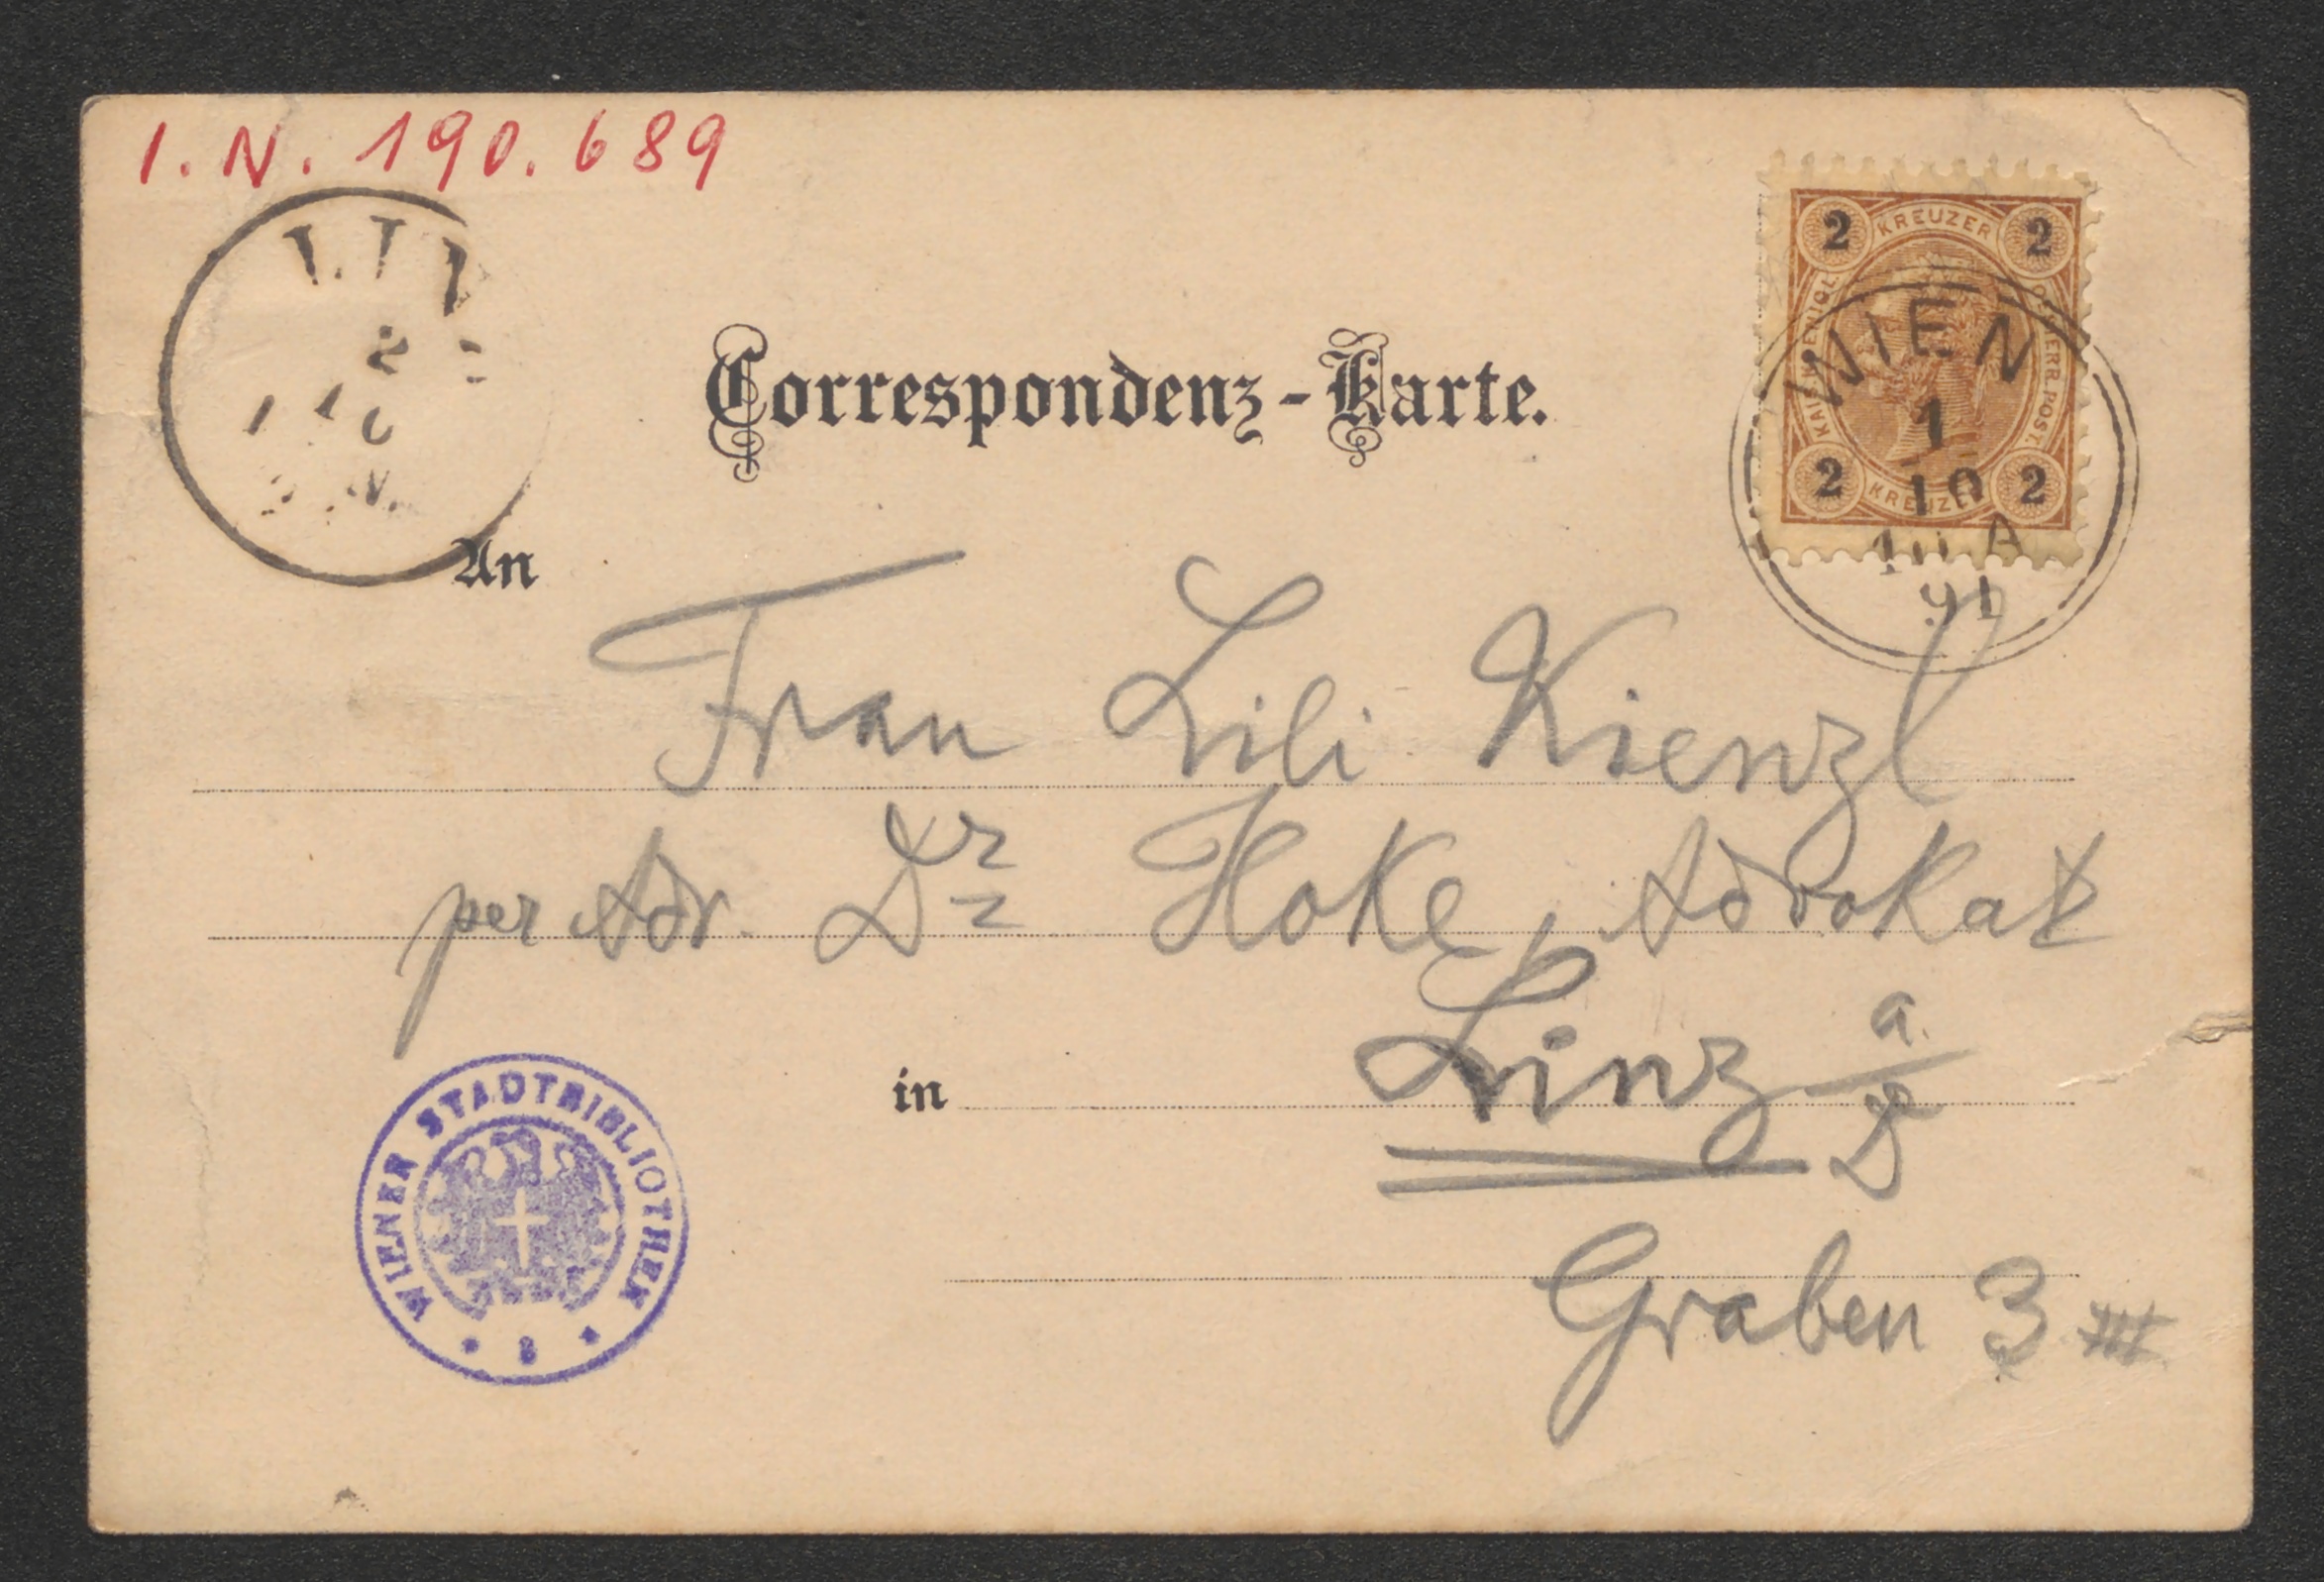 I. N. 190.689
2 KREUZER 2
KAIS. KOENIGL. OESTERR. POST.
2 KREUZER 2
WIEN
1
10
91
Correspondenz-Karte.
An
Frau Lili Kienzl
per Adr. Dr Hoke, Advokat
in Linz a/D
Graben 3
WIENER STADTBIBLIOTHEK